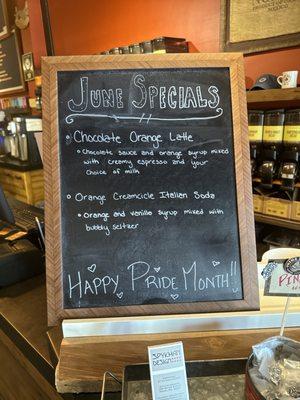 June Specials
Chocolate Orange Latte
Chocolate sauce and orange syrup mixed
with creamy espresso and your
choice of milk
Orange Creamcicle Italian Soda
Orange and vanilla syrup mixed with
bubbly seltzer
Happy Pride Month!!
SPYKMAN
DESIGN